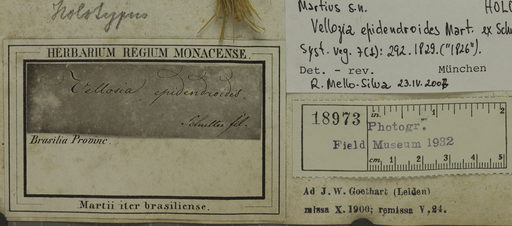 Holotypus
HERBARIUM REGIUM MONACENSE.
Vellosia epidendroides.
Schultes fil.
Brasilia Provinc.
Martii iter brasiliense.
Martius s.n. HOLO
Vellozia epidendroides Mart. ex Schu
Syst. veg. 7(1): 292. 1829. ("1826").
Det. - rev. München
R. Mello-Silva 23.IV.2007
18973
in. 1 2
Photogr.
Field Museum 1932
cm. 1 2 3 4 5
Ad J. W. Goethart (Leiden)
missa X. 1900; remissa V. 24.